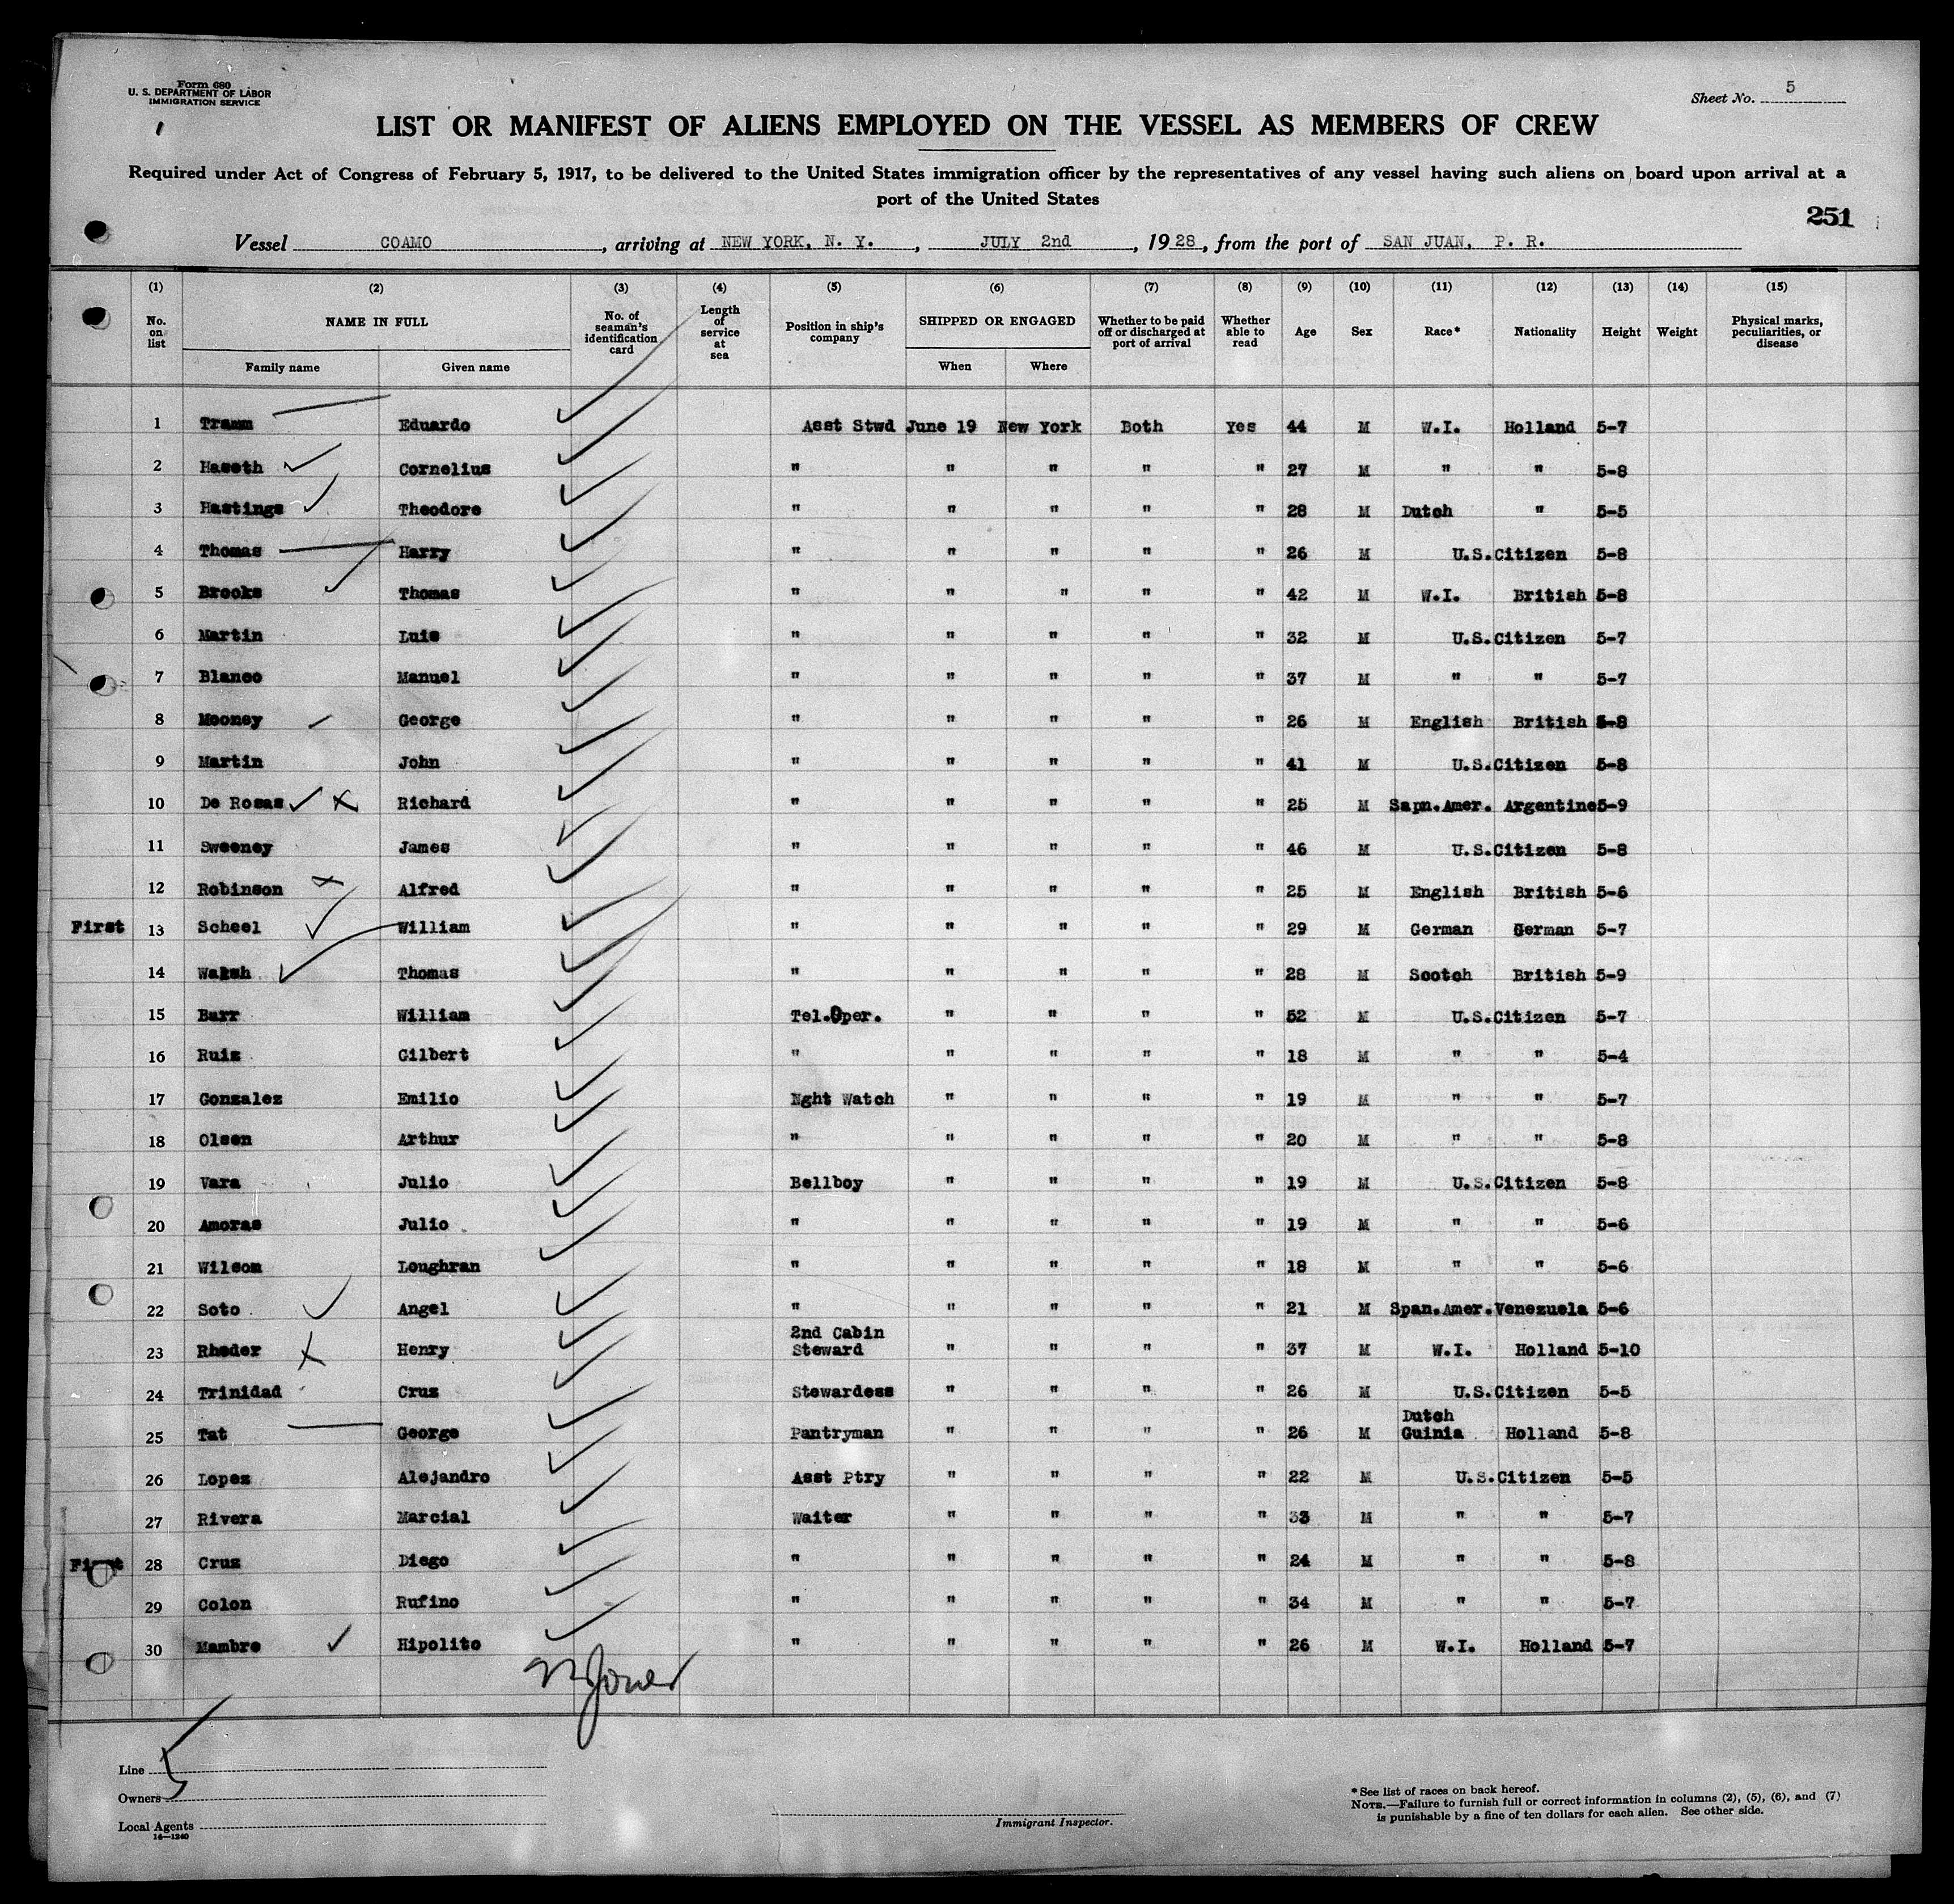 Form 680
U. S. DEPARTMENT OF LABOR
IMMIGRATION SERVICE
Sheet No. 5
LIST OR MANIFEST OF ALIENS EMPLOYED ON THE VESSEL AS MEMBERS OF CREW
Required under Act of Congress of February 5, 1917, to be delivered to the United States immigration officer by the representatives of any vessel having such aliens on board upon arrival at a
port of the United States
251
Vessel COAMO, arriving at NEW YORK, N. Y., JULY 2nd, 1928, from the port of SAN JUAN, P. R.
(1) (2) (3) (4) (5) (6) (7) (8) (9) (10) (11) (12) (13) (14) (15)
No. on list NAME IN FULL No. of seaman's identification card Length of service at sea Position in ship's company SHIPPED OR ENGAGED Whether to be paid off or discharged at port of arrival Whether able to read Age Sex Race* Nationality Height Weight Physical marks, peculiarities, or disease
Family name Given name When Where
1 Tramm Eduardo Asst Stwd June 19 New York Both Yes 44 M W.I. Holland 5-7
2 Haseth Cornelius " " " " " 27 M " " 5-8
3 Hastings Theodore " " " " " 28 M Dutch " 5-5
4 Thomas Harry " " " " " 26 M U.S.Citizen 5-8
5 Brooks Thomas " " " " " 42 M W.I. British 5-8
6 Martin Luis " " " " " 32 M U.S.Citizen 5-7
7 Blanco Manuel " " " " " 37 M " " 5-7
8 Mooney George " " " " " 26 M English British 5-8
9 Martin John " " " " " 41 M U.S.Citizen 5-8
10 De Rosas Richard " " " " " 25 M Sapn.Amer. Argentine 5-9
11 Sweeney James " " " " " 46 M U.S.Citizen 5-8
12 Robinson Alfred " " " " " 25 M English British 5-6
First 13 Scheel William " " " " " 29 M German German 5-7
14 Walsh Thomas " " " " " 28 M Scotch British 5-9
15 Barr William Tel.Oper. " " " " 52 M U.S.Citizen 5-7
16 Ruiz Gilbert " " " " " 18 M " " 5-4
17 Gonzalez Emilio Nght Watch " " " " 19 M " " 5-7
18 Olsen Arthur " " " " " 20 M " " 5-8
19 Vara Julio Bellboy " " " " 19 M U.S.Citizen 5-8
20 Amoras Julio " " " " " 19 M " " 5-6
21 Wilson Loughran " " " " " 18 M " " 5-6
22 Soto Angel " " " " " 21 M Span.Amer. Venezuela 5-6
23 Rheder Henry 2nd Cabin Steward " " " " 37 M W.I. Holland 5-10
24 Trinidad Cruz Stewardess " " " " 26 M U.S.Citizen 5-5
25 Tat George Pantryman " " " " 26 M Dutch Guinia Holland 5-8
26 Lopez Alejandro Asst Ptry " " " " 22 M U.S.Citizen 5-5
27 Rivera Marcial Waiter " " " " 33 M " " 5-7
First 28 Cruz Diego " " " " " 24 M " " 5-8
29 Colon Rufino " " " " " 34 M " " 5-7
30 Mambre Hipolito " " " " " 26 M W.I. Holland 5-7
Line
Owners
Local Agents
14—1240
Immigrant Inspector.
*See list of races on back hereof.
NOTE.—Failure to furnish full or correct information in columns (2), (5), (6), and (7)
is punishable by a fine of ten dollars for each alien. See other side.